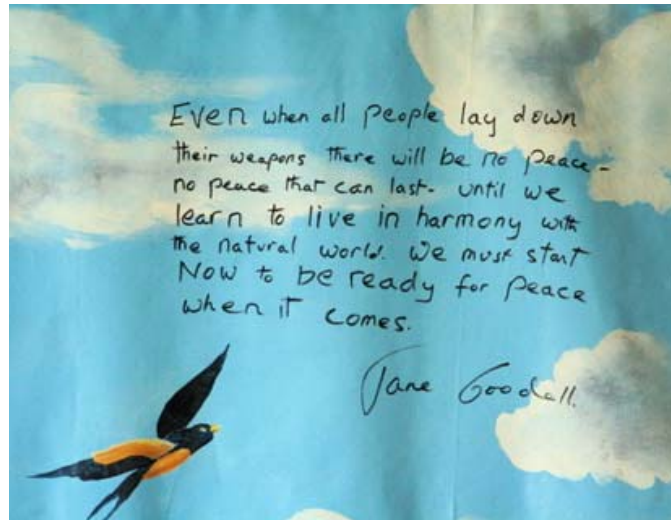 Even when all people lay down
their weapons there will be no peace -
no peace that can last - until we
learn to live in harmony with
the natural world. We must start
Now to be ready for peace
when it comes.
Jane Goodall.